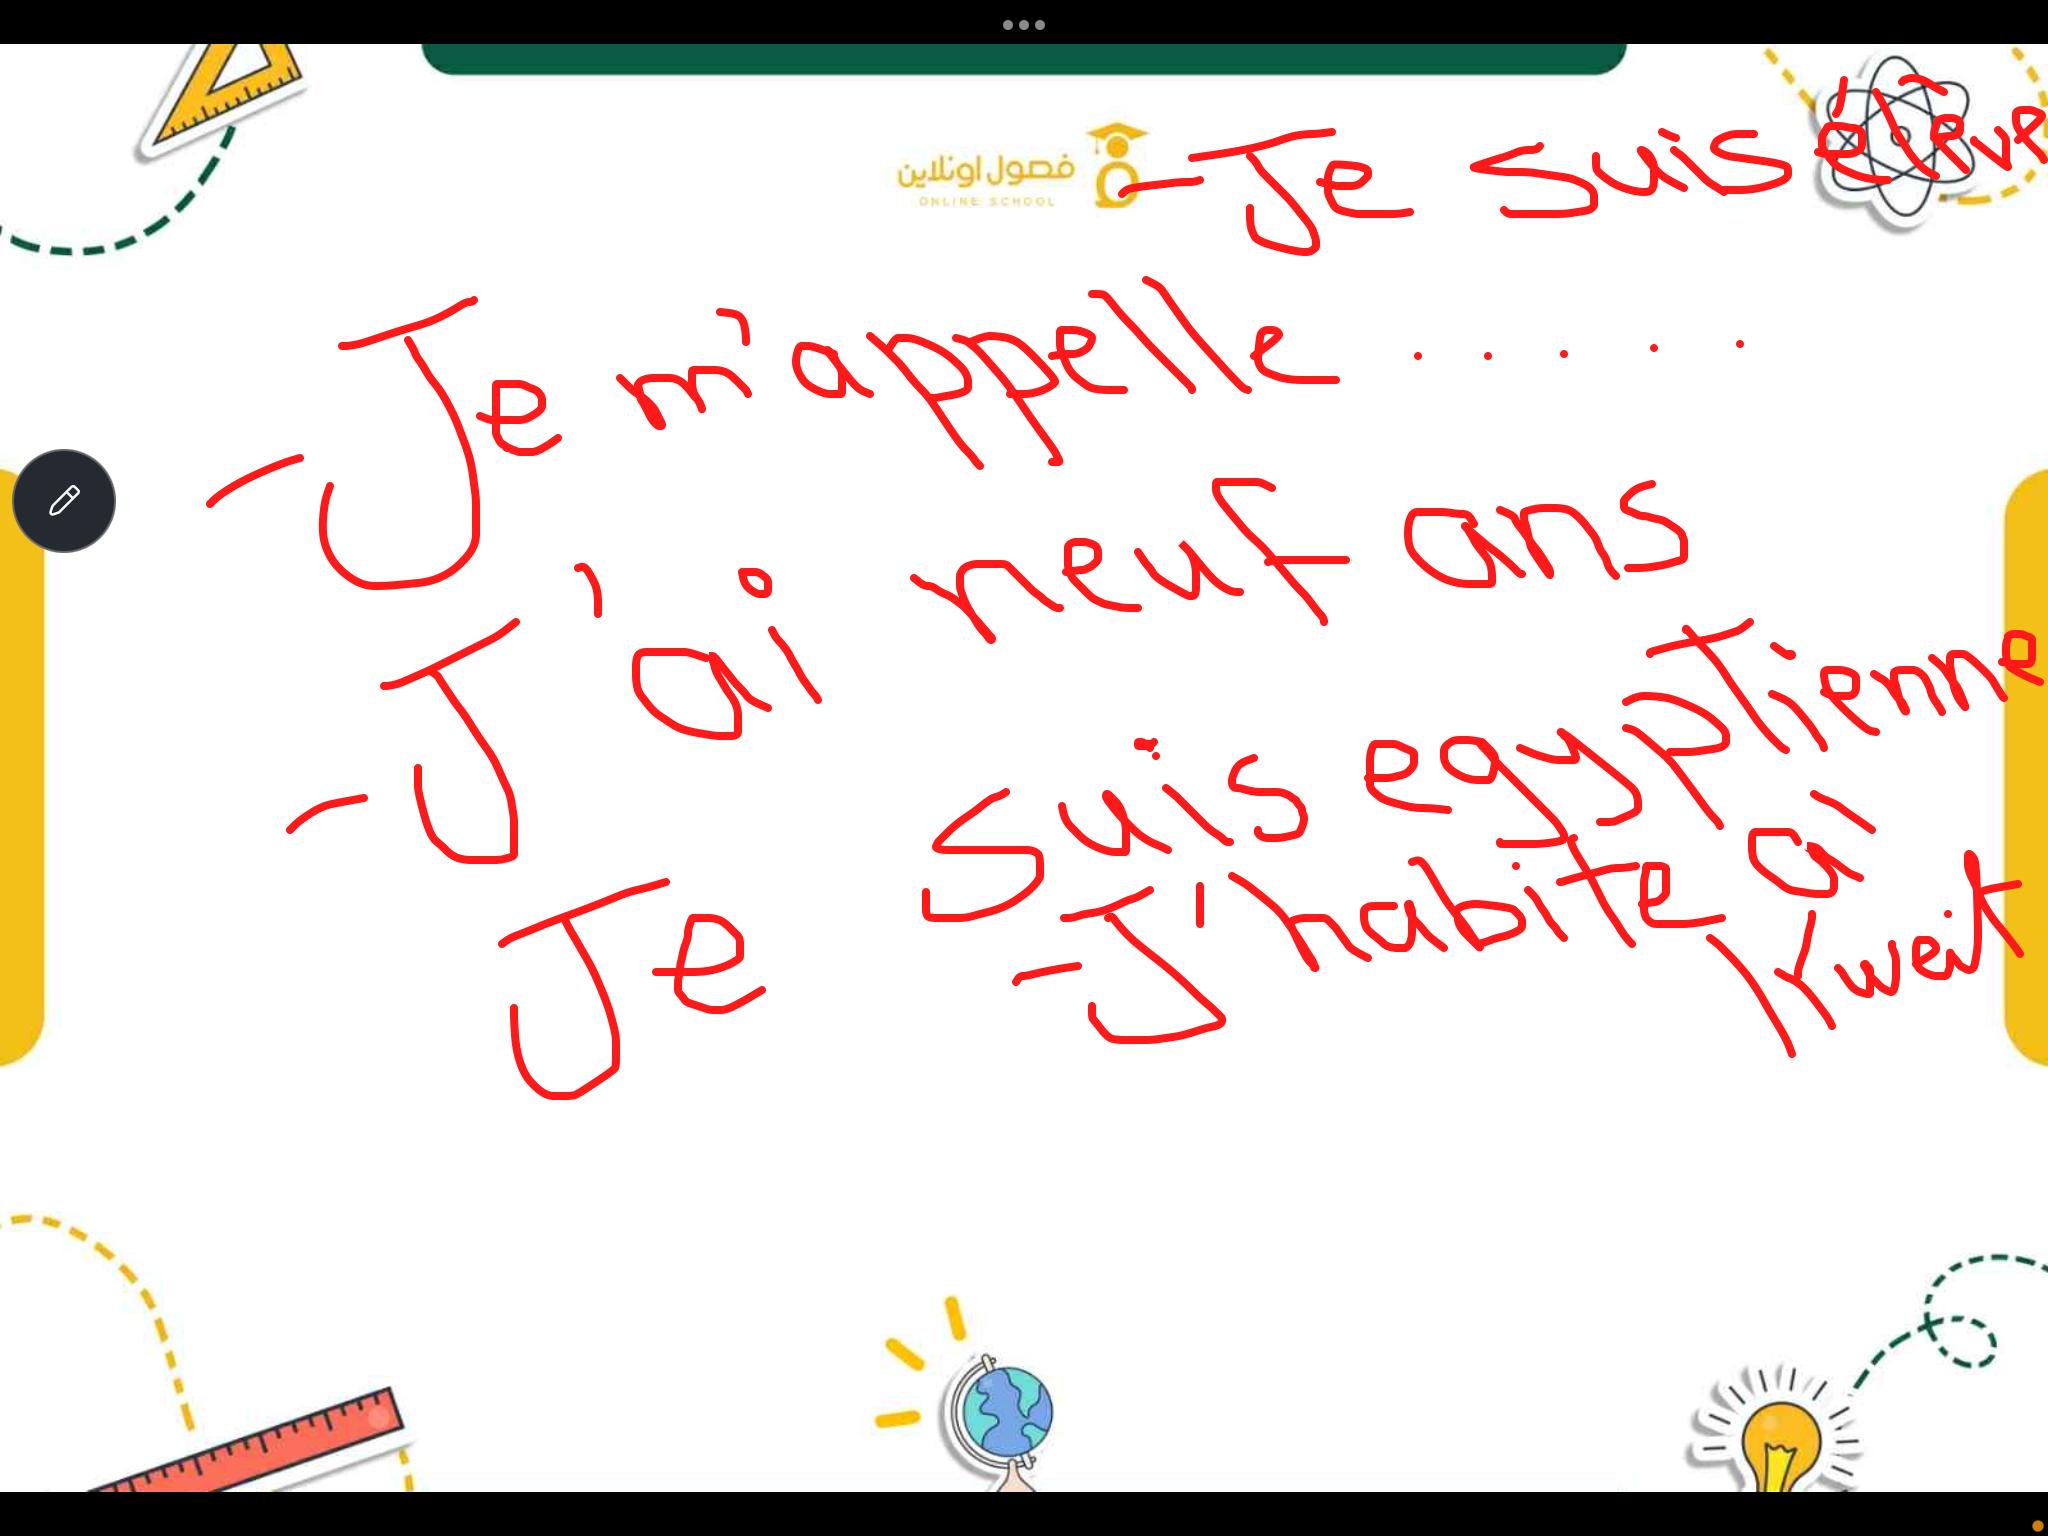 فصول اونلاين
ONLINE SCHOOL
- Je suis élève
- Je m'appelle .....
- J'ai neuf ans
Je suis egyptienne
- J'habite à
Kweit